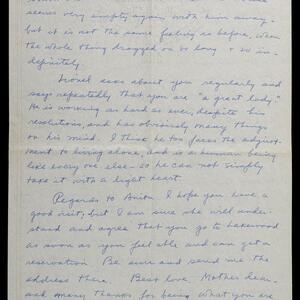 seems very empty again with him away.
but it is not the same feeling as before, when
the whole thing dragged on so long & so in-
definitely.
Lionel asks about you regularly and
says repeatedly that you are "a great lady."
He is working as hard as ever, despite his
resolutions, and has obviously many things
on his mind. I think he too faces the adjust-
ment to living alone, and is a human being
like every one else - so he can not simply
take it with a light heart.
Regards to Anita. I hope you have a
good visit, but I am sure she will under-
stand and agree that you go to Lakewood
as soon as you feel able and can get a
reservation. Be sure and send me the
address there. Best love, Mother dear,
and many thanks for being what you are